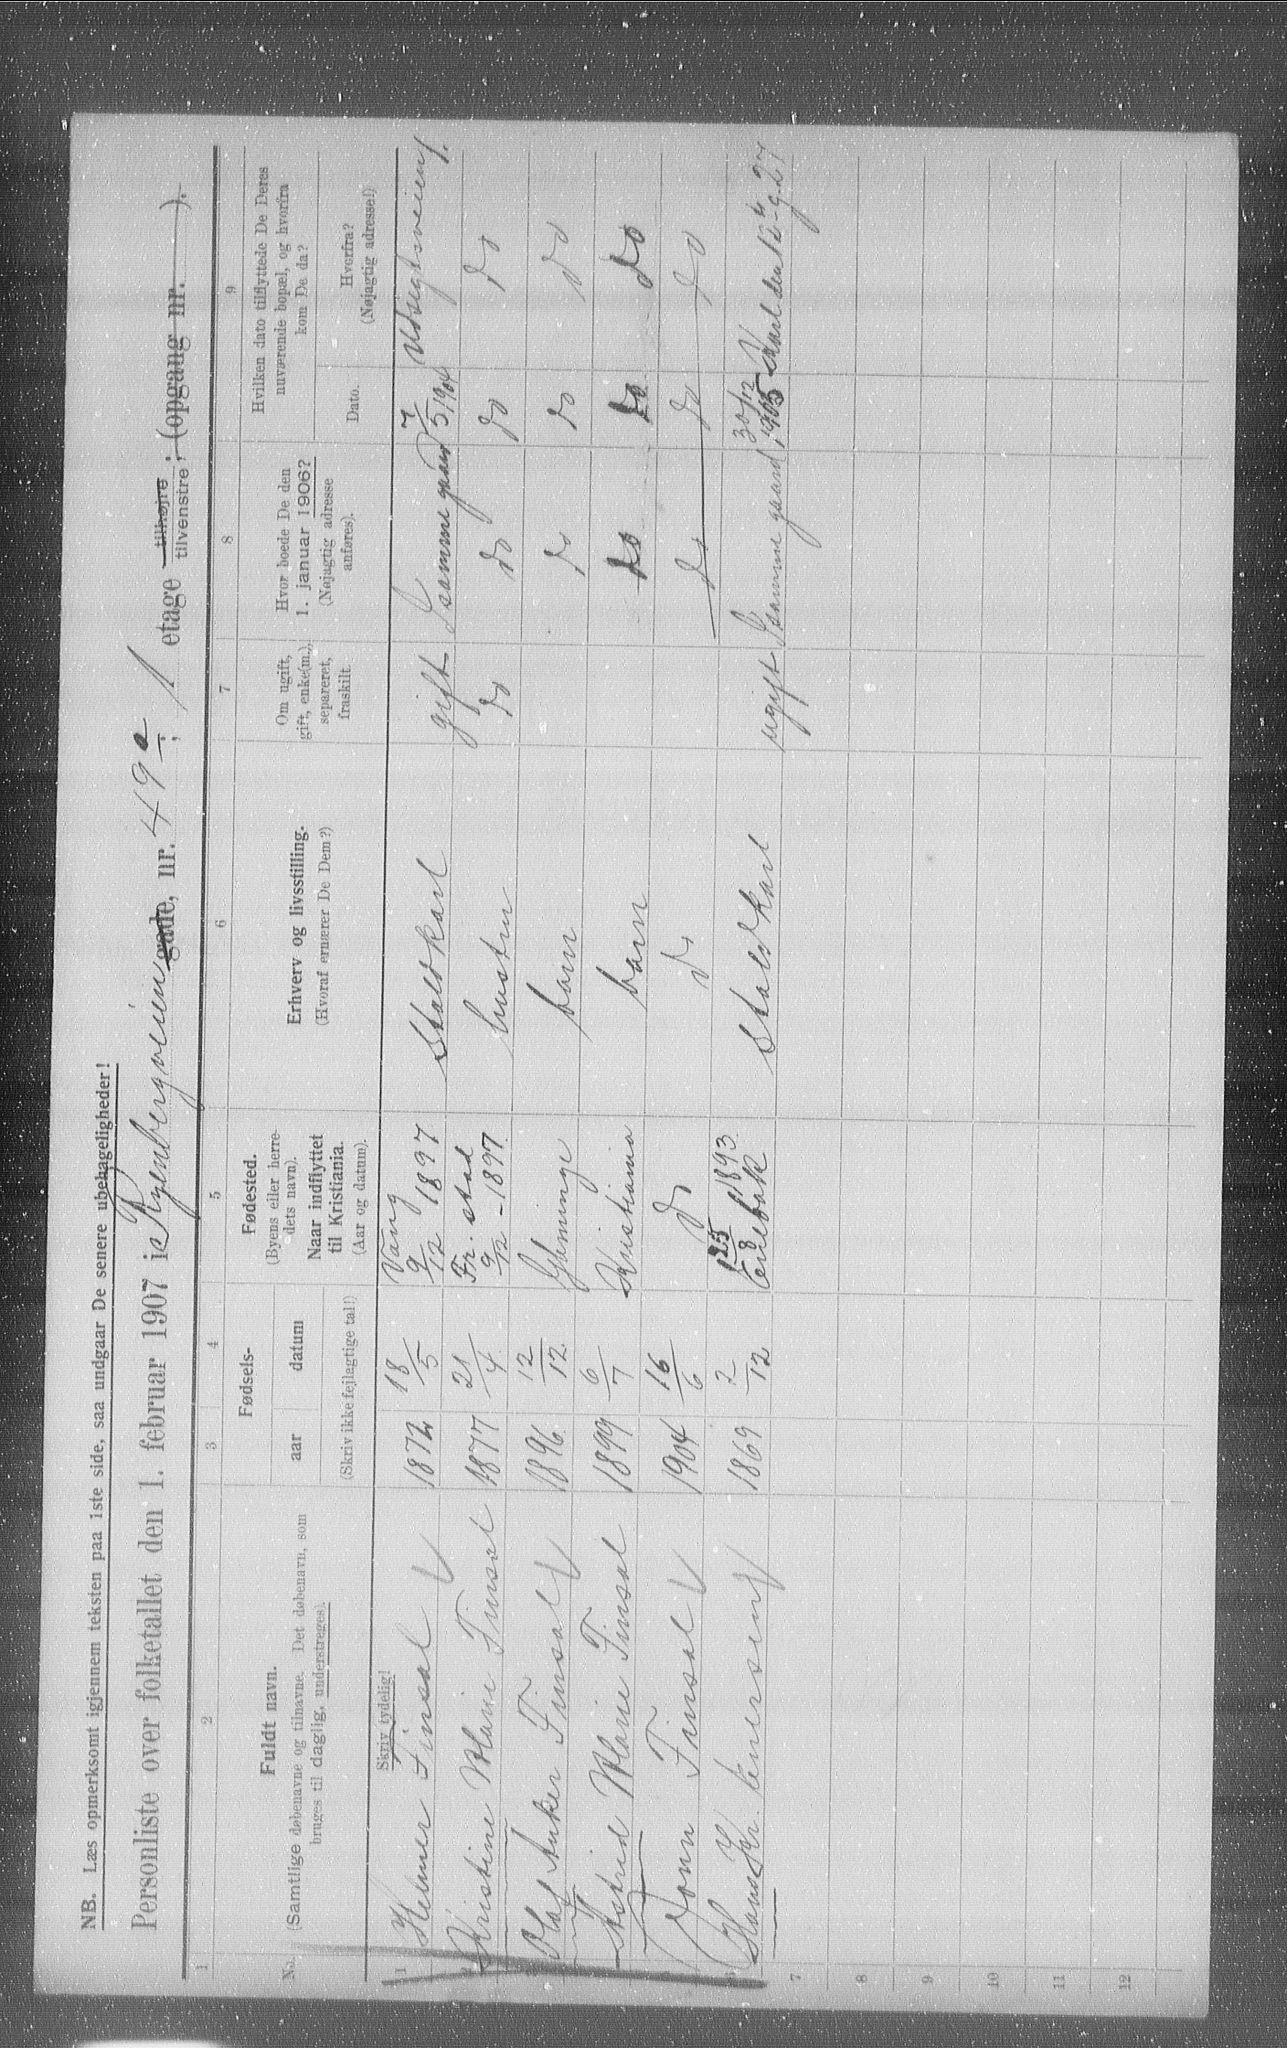 NB. Læs opmerksomt igjennem teksten paa 1ste side, saa undgaar De senere ubehageligheder!
Personliste over folketallet den 1. februar 1907 i Ryenbergveien gade, nr. 49 a; 1 etage tilhøjre tilvenstre; (opgang nr. ).
1 2 3 4 5 6 7 8 9
No. Fuldt navn. (Samtlige døbenavne og tilnavne. Det døbenavn, som bruges til daglig, understreges).
Fødsels- aar datum (Skriv ikke fejlagtige tal!)
Fødested. (Byens eller herredets navn). Naar indflyttet til Kristiania. (Aar og datum).
Erhverv og livsstilling. (Hvoraf ernærer De Dem?)
Om ugift, gift, enke(m.), separeret, fraskilt.
Hvor boede De den 1. januar 1906? (Nøjagtig adresse anføres).
Hvilken dato tilflyttede De Deres nuværende bopæl, og hvorfra kom De da?
Dato. Hvorfra? (Nøjagtig adresse!)
Skriv tydelig!
1 Helmer Finsal 1872 18/5 Vang 9/12 1897 Staldkarl gift I samme gaard 7/5 1904 Udsigtsveien 1.
2 Kristine Marie Finsal 1877 21/4 Fr. stad 9/12 - 1897 hustru do do do do
3 Olaf Anker Finsal 1896 12/12 Glemminge barn do do do
4 Astrid Marie Finsal 1899 6/7 Kristiania barn do do do
5 John Finsal 1904 16/6 do do do do do
6 Hans Kr. Enersen 1869 2/12 25/8 1893 Enebak Staldkarl ugift I samme gaard 30/12 1905 Karl den 12te g. 27
7
8
9
10
11
12